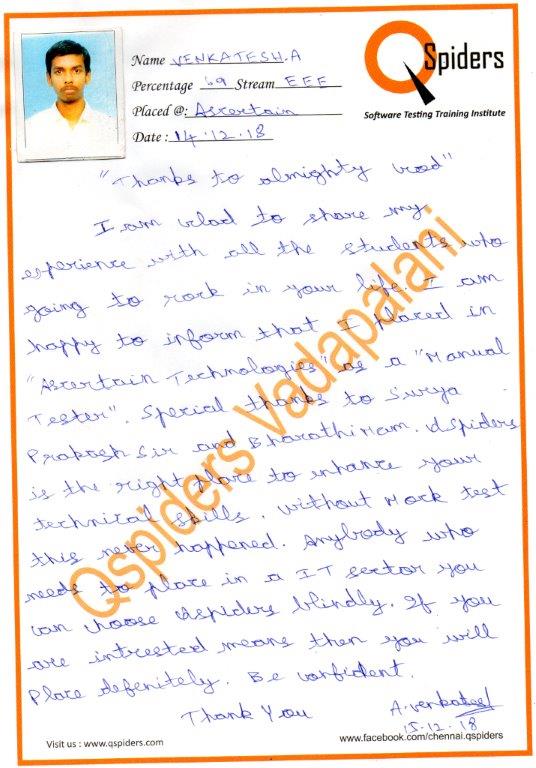 Name VENKATESH.A
Percentage 69 Stream EEE
Placed @: Ascertain
Date : 14.12.18
QSpiders
Software Testing Training Institute
"Thanks to almighty God"
I am Glad to share my
experience with all the students who
going to rock in your life. I am
happy to inform that I placed in
"Ascertain Technologies" as a "Manual
Tester". Special thanks to Surya
Prakash Sir and Bharathi Mam. QSpiders
is the right place to enhance your
technical skills. Without Mock test
this never happened. Anybody who
needs to place in a IT sector you
can choose QSpiders blindly. If you
are intrested means then you will
Place defenitely. Be confident.
Thank You
A.Venkatesh
15-12-18
Qspiders Vadapalani
Visit us : www.qspiders.com
www.facebook.com/chennai.qspiders